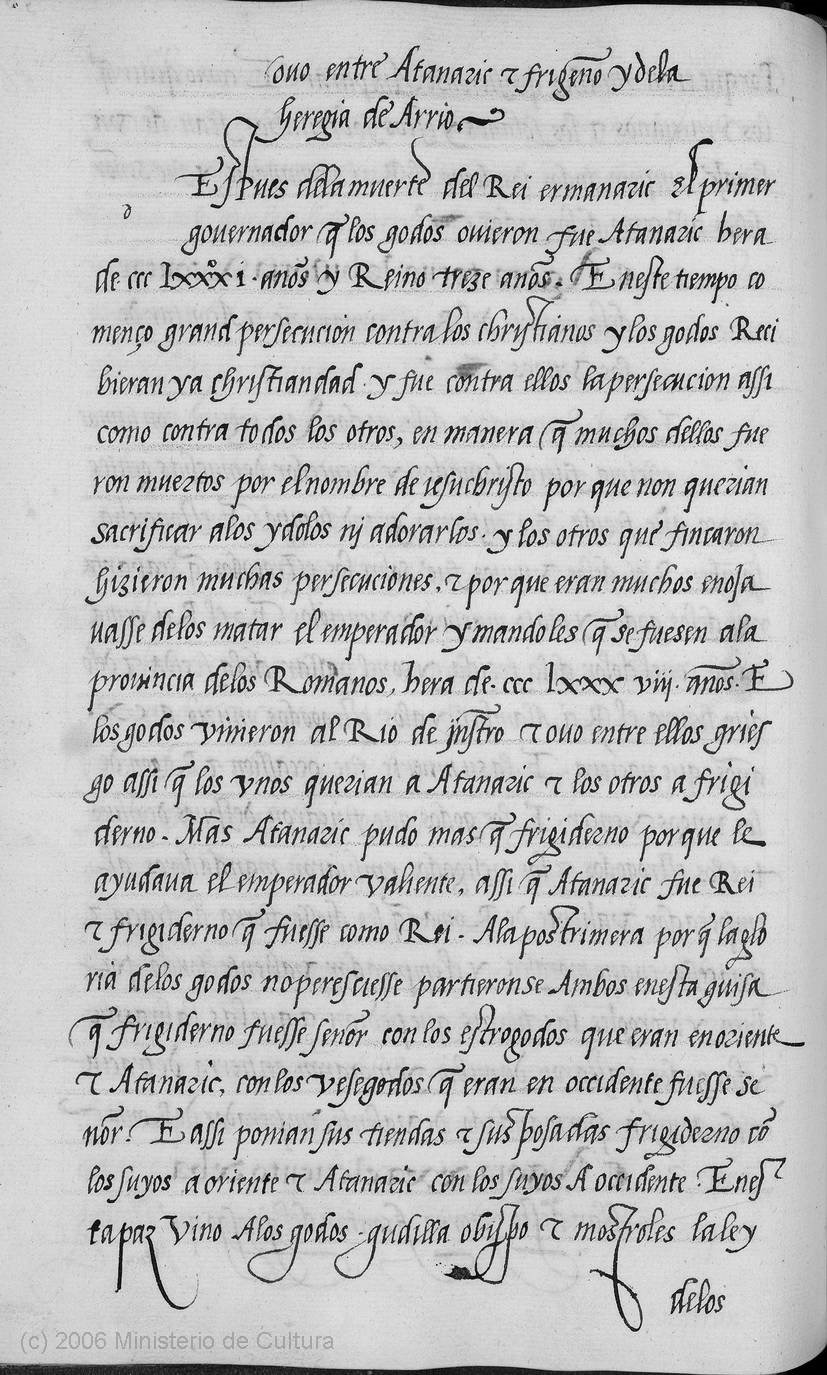 ouo entre Atanaric τ frigeño y dela
heregia de Arrio.
Espues dela muerte del Rei ermanaric El primer
d
gouernador q̃ los godos ouieron fue Atanaric hera
de ccc lxxxi. años y Reino treze años. E neste tiempo co
menço grand persecucion contra los christianos y los godos Reci
bieran ya christiandad. y fue contra ellos la persecucion assi
como contra todos los otros, en manera q̃ muchos dellos fue
ron muertos por el nombre de iesuchristo por que non querian
sacrificar alos ydolos nj adorarlos. y los otros que fincaron
hizieron muchas persecuciones, τ por que eran muchos enoja
uasse delos matar el emperador y mandoles q̃ se fuesen ala
prouincia delos Romanos, hera de. ccc lxxx viij. años. E
los godos vinieron al Rio de jnstro τ ouo entre ellos gries
go assi q̃ los vnos querian a Atanaric τ los otros a frigi
derno. Mas Atanaric pudo mas q̃ frigiderno por que le
ayudaua el emperador valiente, assi q̃ Atanaric fue Rei
τ frigiderno q̃ fuesse como Rei. Ala postrimera por q̃ la glo
ria delos godos no peresciesse partieronse Ambos enesta guisa
q̃ frigiderno fuesse señor con los estrogodos que eran en oriente
τ Atanaric, con los vesegodos q̃ eran en occidente fuesse se
ñor. E assi ponian sus tiendas τ sus posadas frigiderno cõ
los suyos a oriente τ Atanaric con los suyos A occidente. E nes
ta paz Vino Alos godos. gudilla obispo τ mostroles la ley
delos
(c) 2006 Ministerio de Cultura